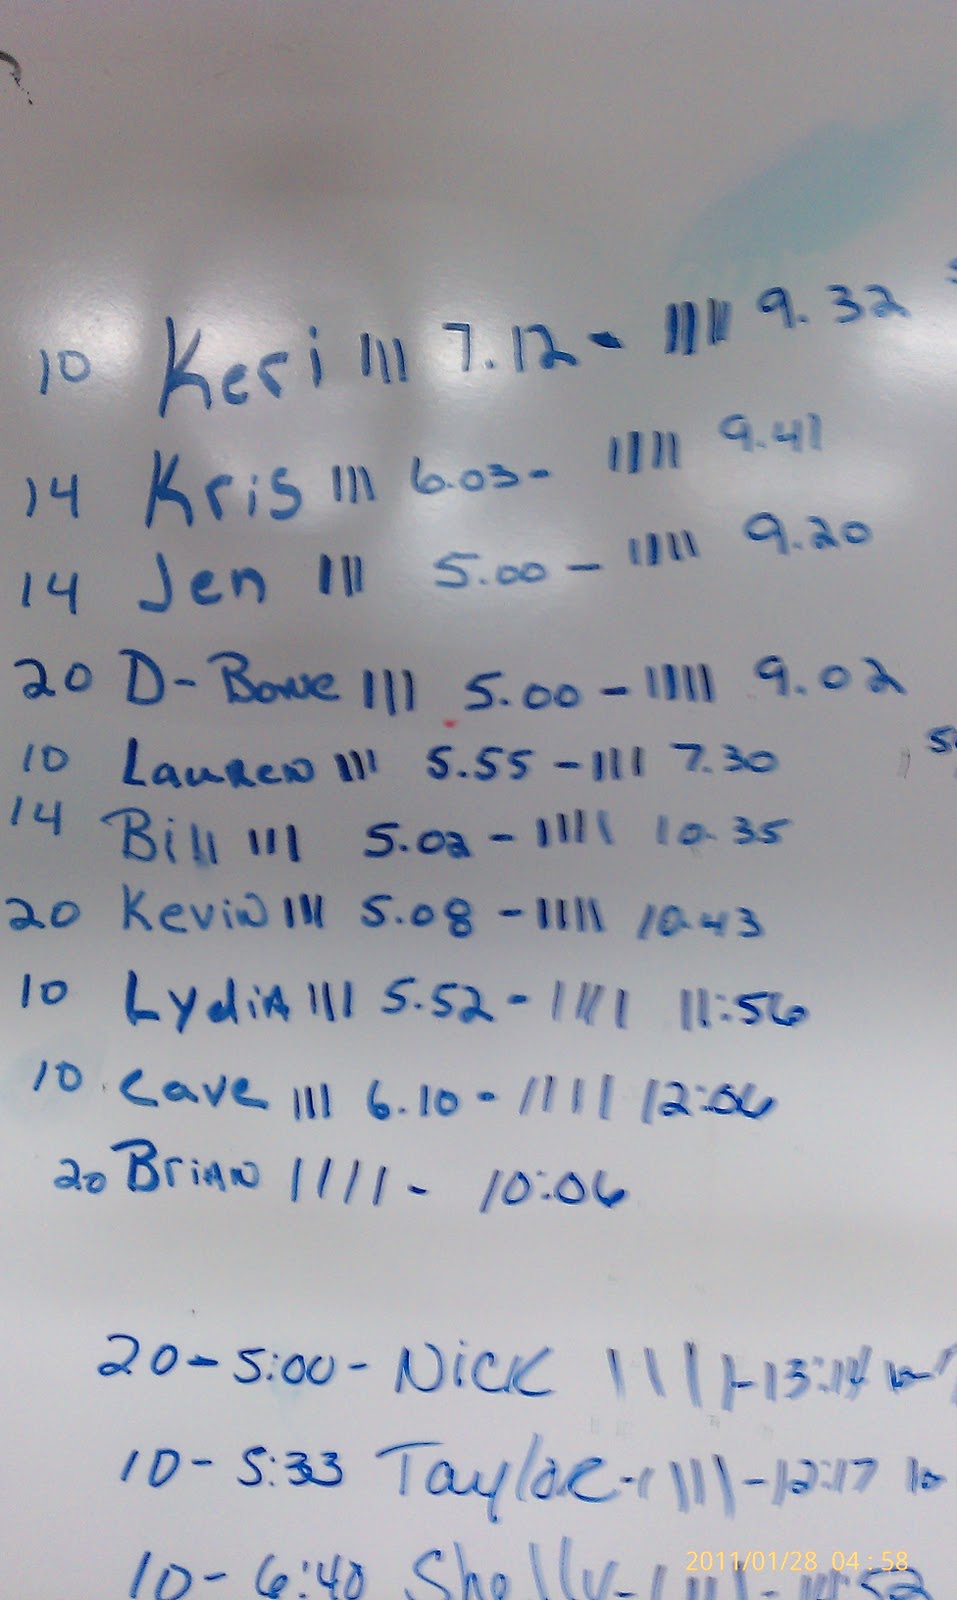 10 Keri ||| 7.12 - |||| 9.32
14 Kris ||| 6.03 - |||| 9.41
14 Jen ||| 5.00 - |||| 9.20
20 D-Bone ||| 5.00 - |||| 9.02
10 Lauren ||| 5.55 - |||| 7.30
14 Bill ||| 5.02 - |||| 10.35
20 Kevin ||| 5.08 - |||| 10.43
10 Lydia ||| 5.52 - |||| 11:56
10 Cave ||| 6.10 - |||| 12:06
20 Brian |||| - 10:06
20 - 5:00 - Nick |||| - 13:14
10 - 5:33 Taylor - |||| - 12:17 10
10 - 6:40 Shelly - |||| - :52
2011/01/28 04:58